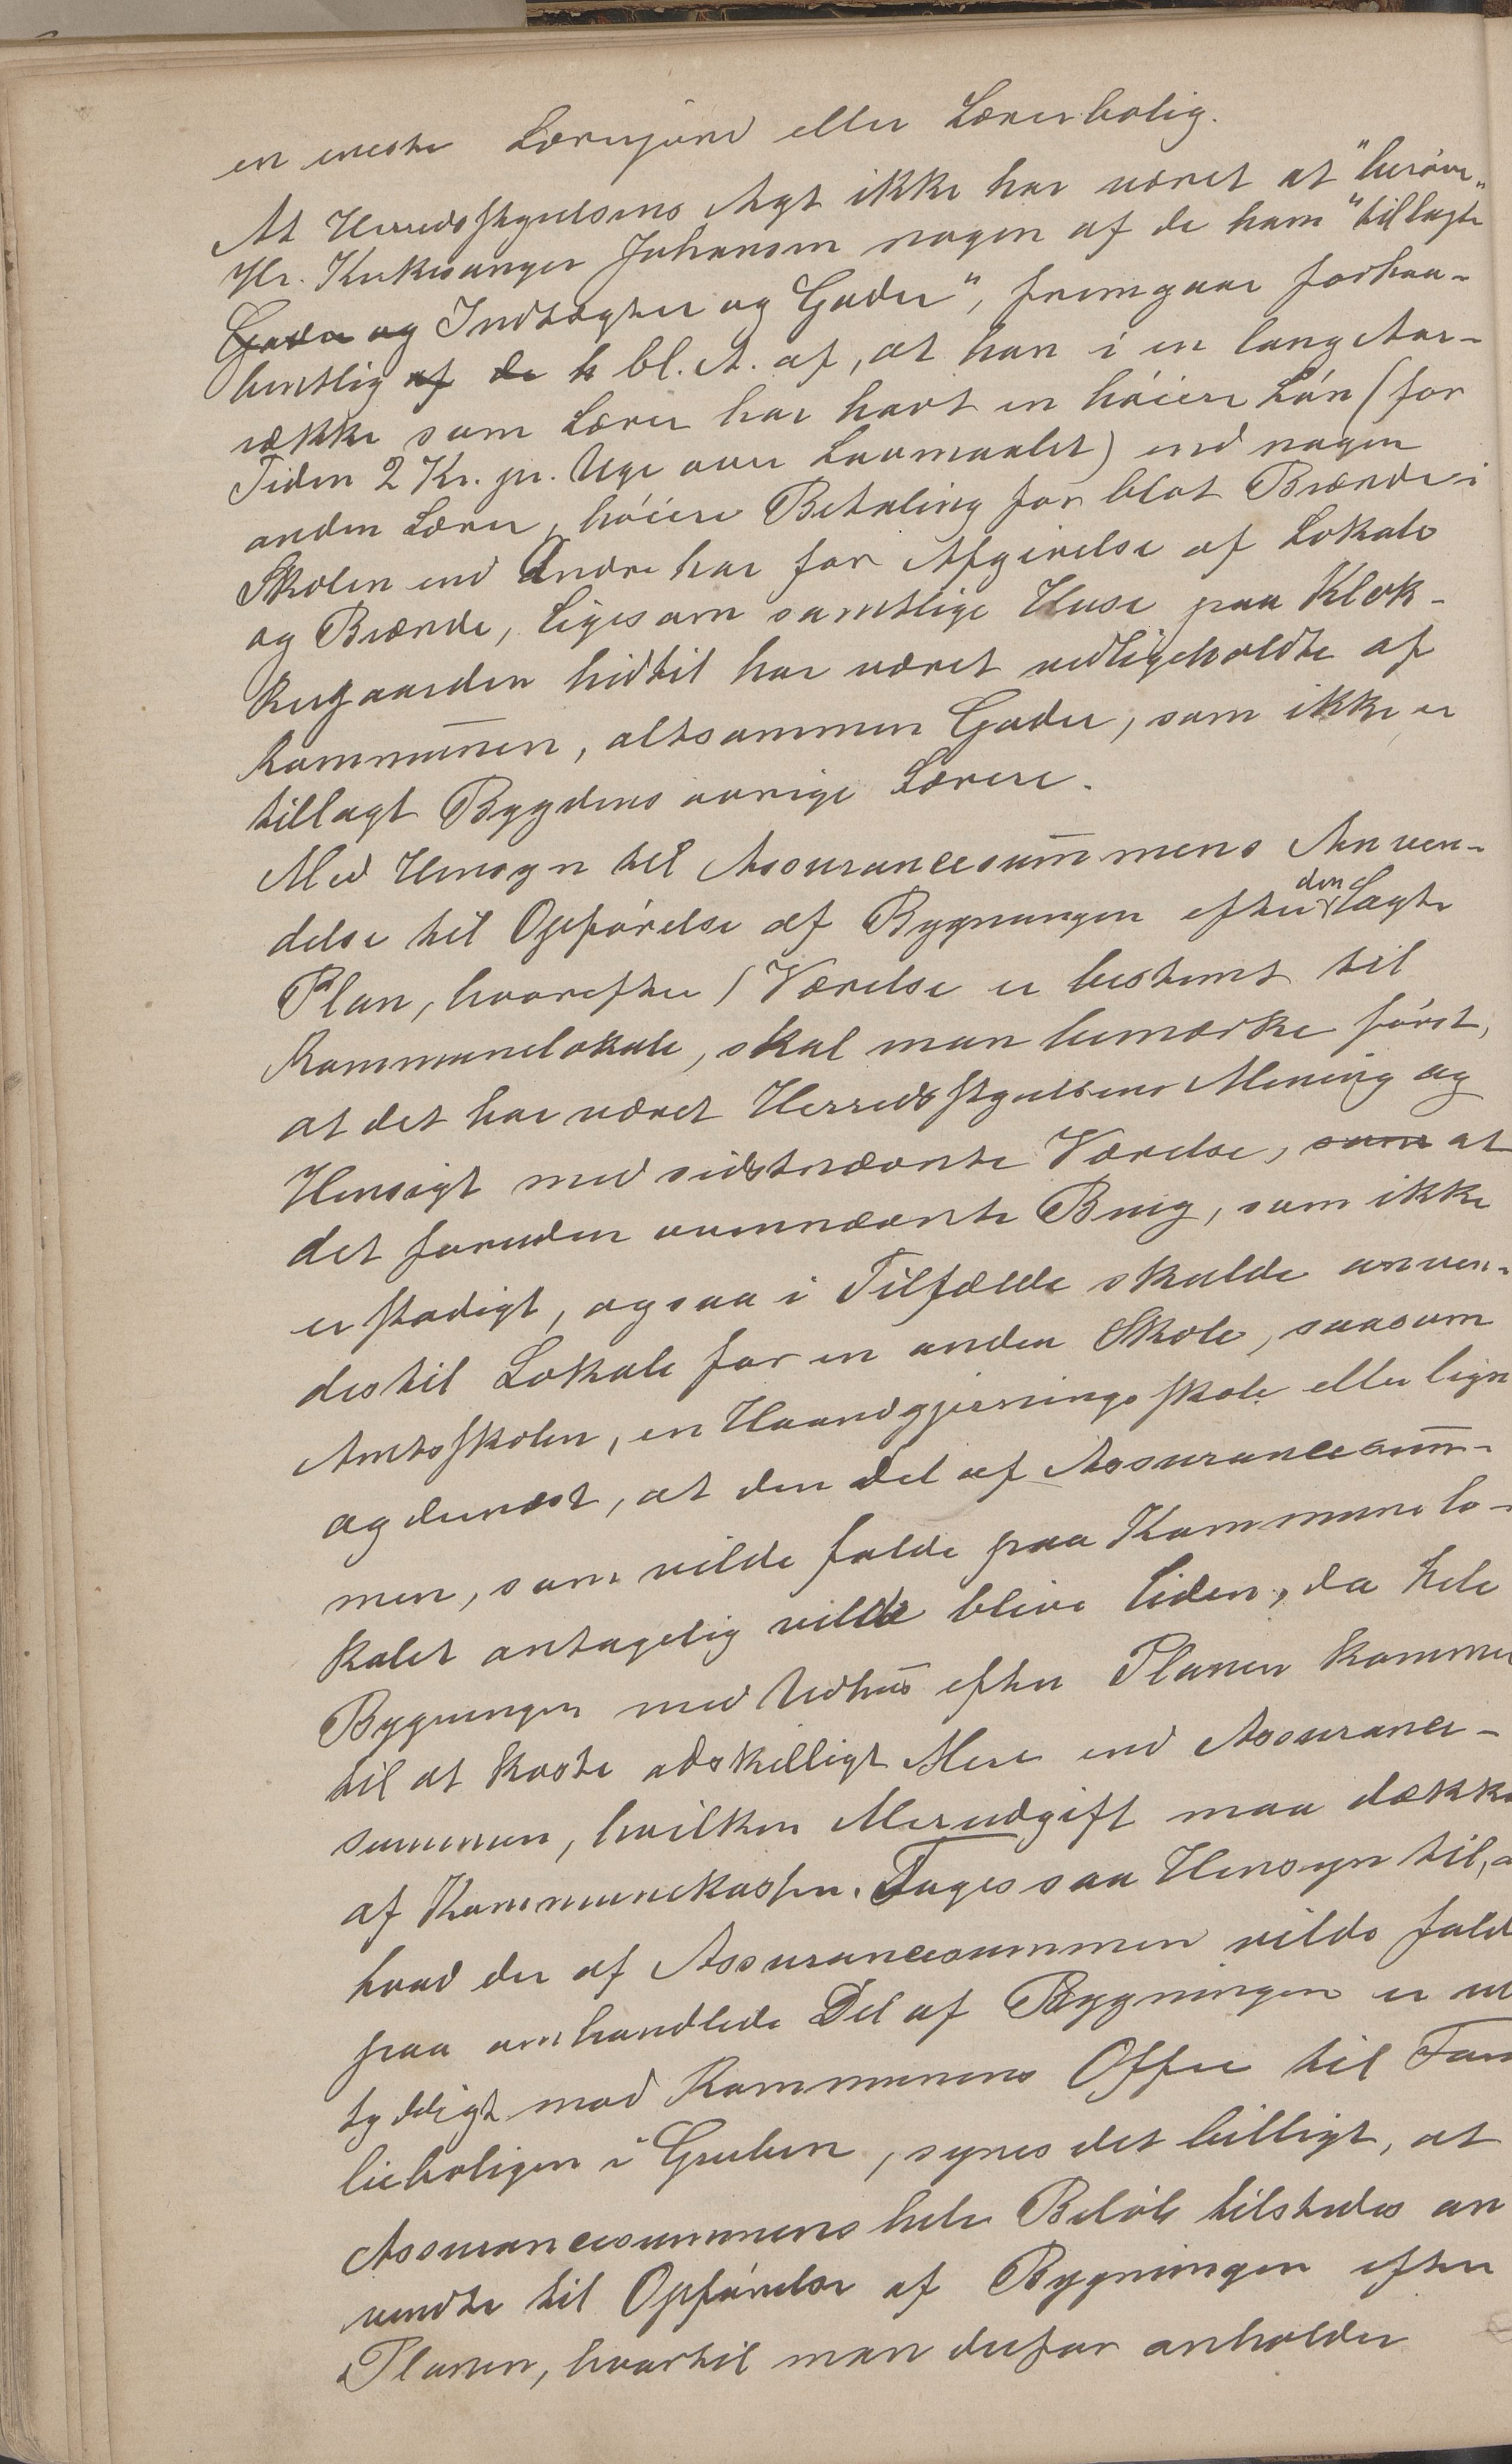 en eneste Lærerjord eller Lærerbolig.
At Herredsstyrelsens Agt ikke har været at "berøve"
Hr. Kirkesanger Johansen nogen af de ham "tillagte
Goder og Indtægter og Goder", fremgaar forhaa-
bentlig af de h bl. A. af, at han i en lang Aar-
række som Lærer har havt en høiere Løn (for
Tiden 2 Kr. pr. Uge over Lovmaalet) end nogen
anden Lærer, høiere Betaling for blot Brænde i
Skolen end Andre har for Afgivelse af Lokale
og Brænde, ligesom samtlige Huse paa Klok-
kergaarden hidtil har været vedligeholdte af
Kommunen, altsammen Goder, som ikke er
tillagt Bygdens øvrige Lærere.
Med Hensyn til Assurancesummens Anven-
delse til Opførelse af Bygningen efter den lagte
Plan, hvorefter 1 Værelse er bestemt til
Kommunelokale, skal man bemærke først,
at det har været Herredsstyrelsens Mening og
Hensigt med sidstnævnte Værelse, som at
det foruden ovennævnte Brug, som ikke
er stadigt, ogsaa i Tilfælde skulde anven-
des til Lokale for en anden Skole, saasom
Amtsskolen, en Haandgjerningsskole eller lign
og dernæst, at den Del af Assurancesum-
men, som vilde falde paa Kommunelo-
kalet antagelig vilde blive liden, da hele
Bygningen med Udhus efter Planen kommer
til at koste adskilligt Mere end Assurance-
summen, hvilken Merudgift maa dækkes
af Kommunekassen. Tages saa Hensyn til, a
hvad der af Assurancesummen vilde falde
paa omhandlede Del af Bygningen er ube
tydeligt mod Kommunens Offer til Fami
lieboligen i Gruben, synes det billigt, at
Assurancesummens hele Beløb tilstedes an
vendte til Opførelse af Bygningen efter
Planen, hvortil man derfor anholder